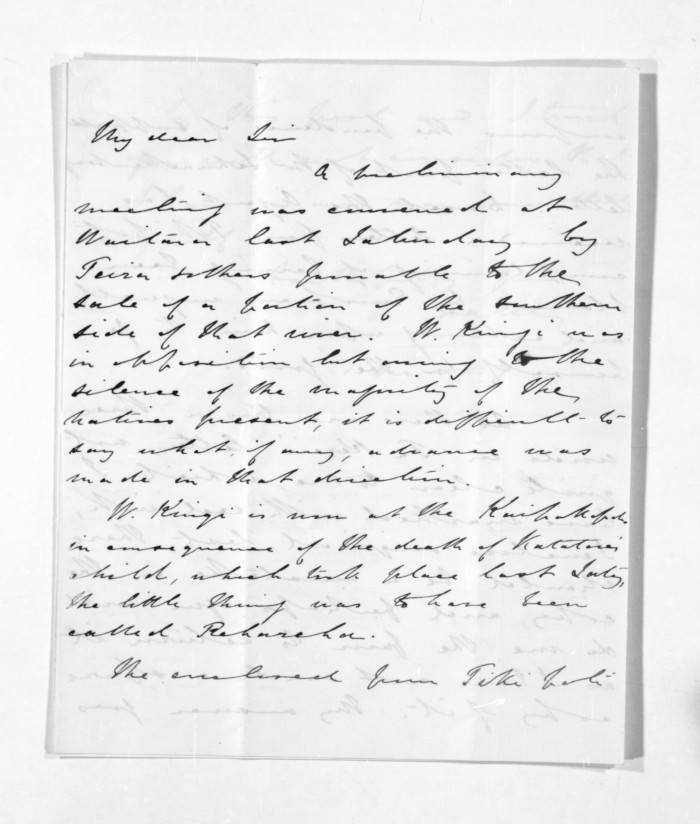 My dear Sir
A preliminary
meeting was convened at
Waitara last Saturday by
Teira & others favorable to the
sale of a portion of the southern
side of that river. W. Kingi was
in opposition but owing to the
silence of the majority of the
natives present, it is difficult to
say what, if any, advance was
made in that direction.
W. Kingi is now at the
in consequence of the death of Katatore's
child, which took place last Satdy,
the little thing was to have been
called
The enclosed from Tiki